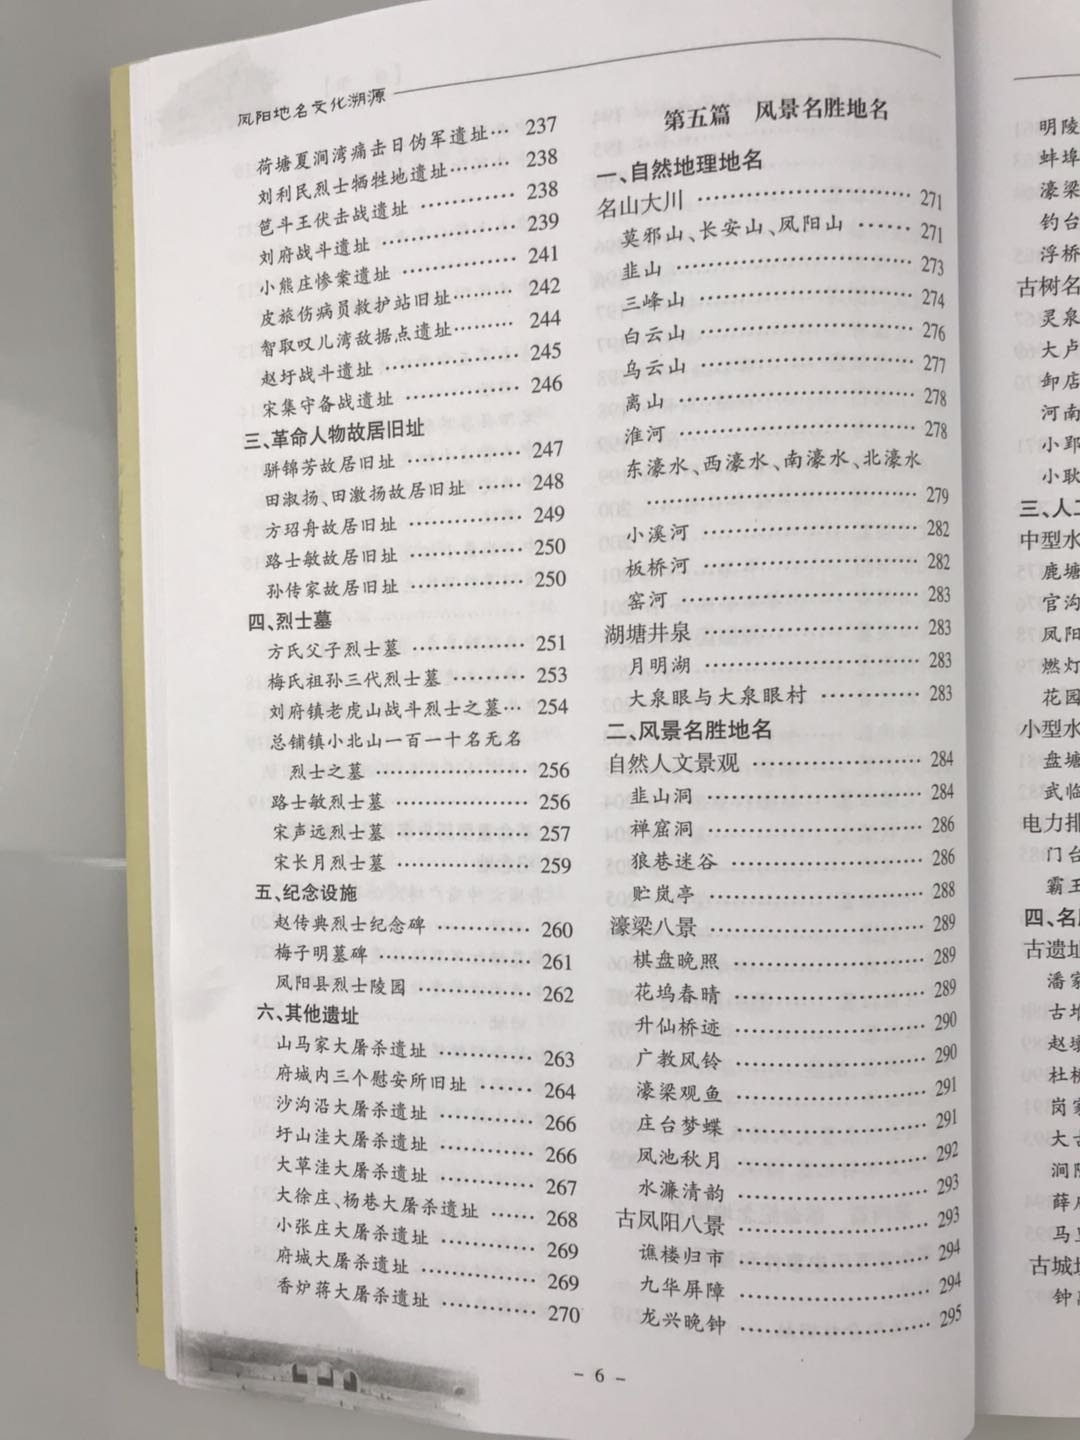 凤阳地名文化溯源
荷塘夏涧湾痛击日伪军遗址… 237
刘利民烈士牺牲地遗址……… 238
笆斗王伏击战遗址 ………… 238
刘府战斗遗址 ……………… 239
小熊庄惨案遗址 …………… 241
皮旅伤病员救护站旧址……… 242
智取叹儿湾敌据点遗址……… 244
赵圩战斗遗址 ……………… 245
宋集守备战遗址 …………… 246
三、革命人物故居旧址
骈锦芳故居旧址 …………… 247
田淑扬、田激扬故居旧址 …… 248
方玿舟故居旧址 …………… 249
路士敏故居旧址 …………… 250
孙传家故居旧址 …………… 250
四、烈士墓
方氏父子烈士墓 …………… 251
梅氏祖孙三代烈士墓 ……… 253
刘府镇老虎山战斗烈士之墓… 254
总铺镇小北山一百一十名无名
烈士之墓 ………………… 256
路士敏烈士墓 ……………… 256
宋声远烈士墓 ……………… 257
宋长月烈士墓 ……………… 259
五、纪念设施
赵传典烈士纪念碑 ………… 260
梅子明墓碑 ………………… 261
凤阳县烈士陵园 …………… 262
六、其他遗址
山马家大屠杀遗址 ………… 263
府城内三个慰安所旧址 …… 264
沙沟沿大屠杀遗址 ………… 266
圩山洼大屠杀遗址 ………… 266
大草洼大屠杀遗址 ………… 267
大徐庄、杨巷大屠杀遗址 …… 268
小张庄大屠杀遗址 ………… 269
府城大屠杀遗址 …………… 269
香炉蒋大屠杀遗址 ………… 270
第五篇 风景名胜地名
一、自然地理地名
名山大川 …………………… 271
莫邪山、长安山、凤阳山 …… 271
韭山 ……………………… 273
三峰山 …………………… 274
白云山 …………………… 276
乌云山 …………………… 277
离山 ……………………… 278
淮河 ……………………… 278
东濠水、西濠水、南濠水、北濠水
……………………… 279
小溪河 …………………… 282
板桥河 …………………… 282
窑河 ……………………… 283
湖塘井泉 …………………… 283
月明湖 …………………… 283
大泉眼与大泉眼村 ………… 283
二、风景名胜地名
自然人文景观 ……………… 284
韭山洞 …………………… 284
禅窟洞 …………………… 286
狼巷迷谷 ………………… 286
贮岚亭 …………………… 288
濠梁八景 …………………… 289
棋盘晚照 ………………… 289
花坞春晴 ………………… 289
升仙桥迹 ………………… 290
广教风铃 ………………… 290
濠梁观鱼 ………………… 291
庄台梦蝶 ………………… 291
凤池秋月 ………………… 292
水濂清韵 ………………… 293
古凤阳八景 ………………… 293
谯楼归市 ………………… 294
九华屏障 ………………… 294
龙兴晚钟 ………………… 295
- 6 -
明陵
蚌埠
濠梁
钓台
浮桥
古树名
灵泉
大卢
卸店
河南
小郢
小耿
三、人工
中型水
鹿塘
官沟
凤阳
燃灯
花园
小型水
盘塘
武临
电力排
门台
霸王
四、名胜
古遗址
潘家
古堆
赵墩
杜桥
岗家
大古
涧
薛
马
古城
钟离